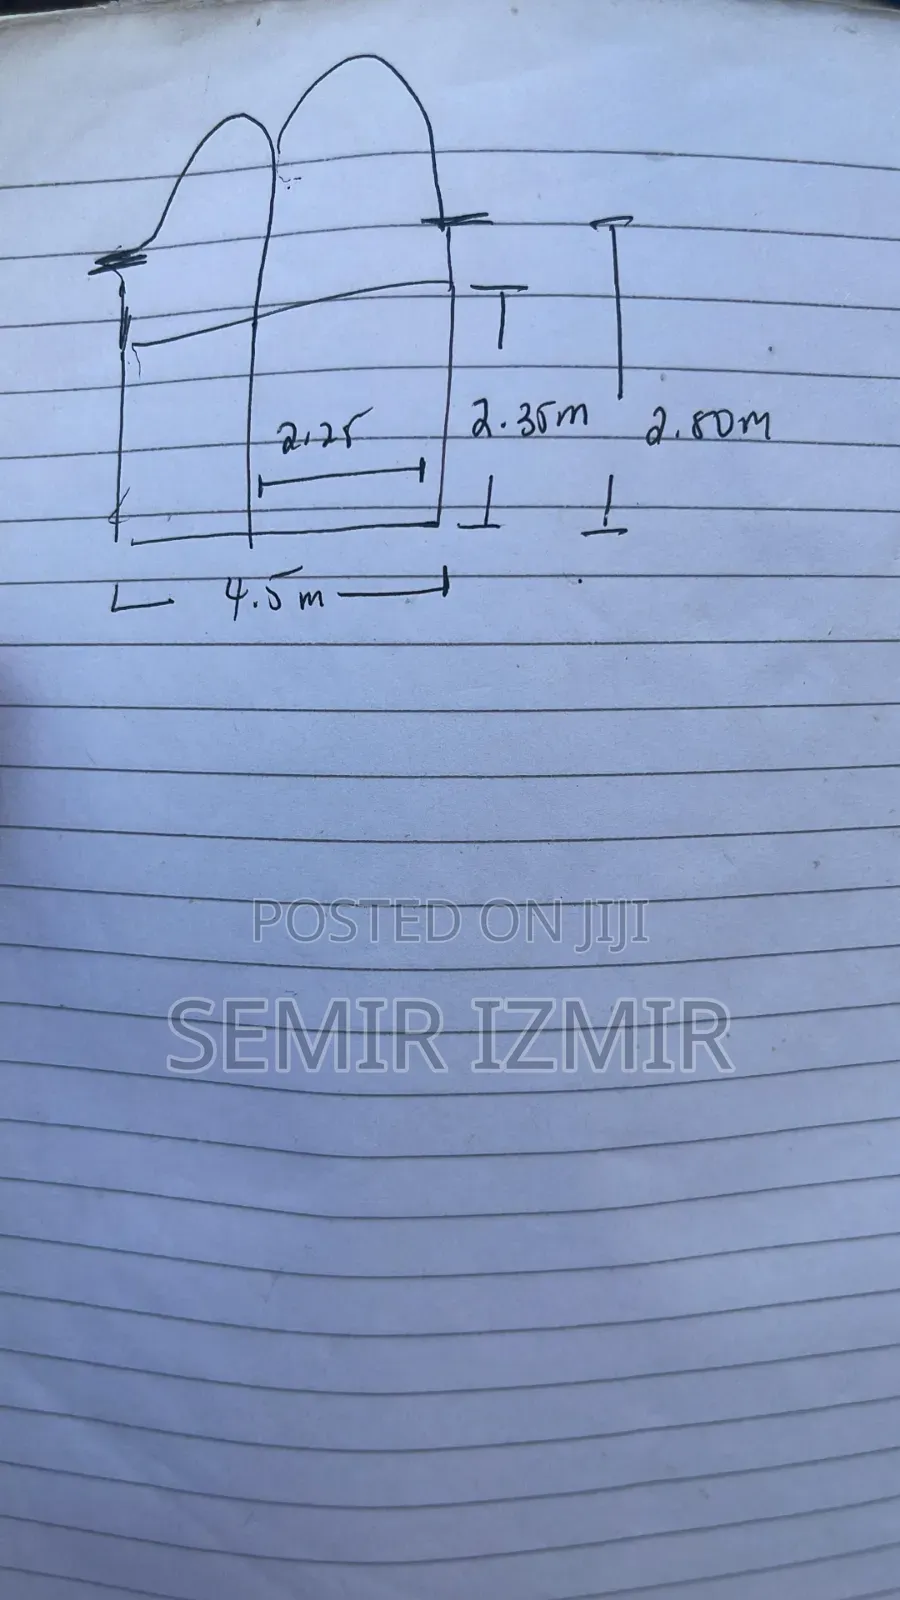 2.25
2.35m
2.80m
4.5m
POSTED ON JIJI
SEMIR IZMIR